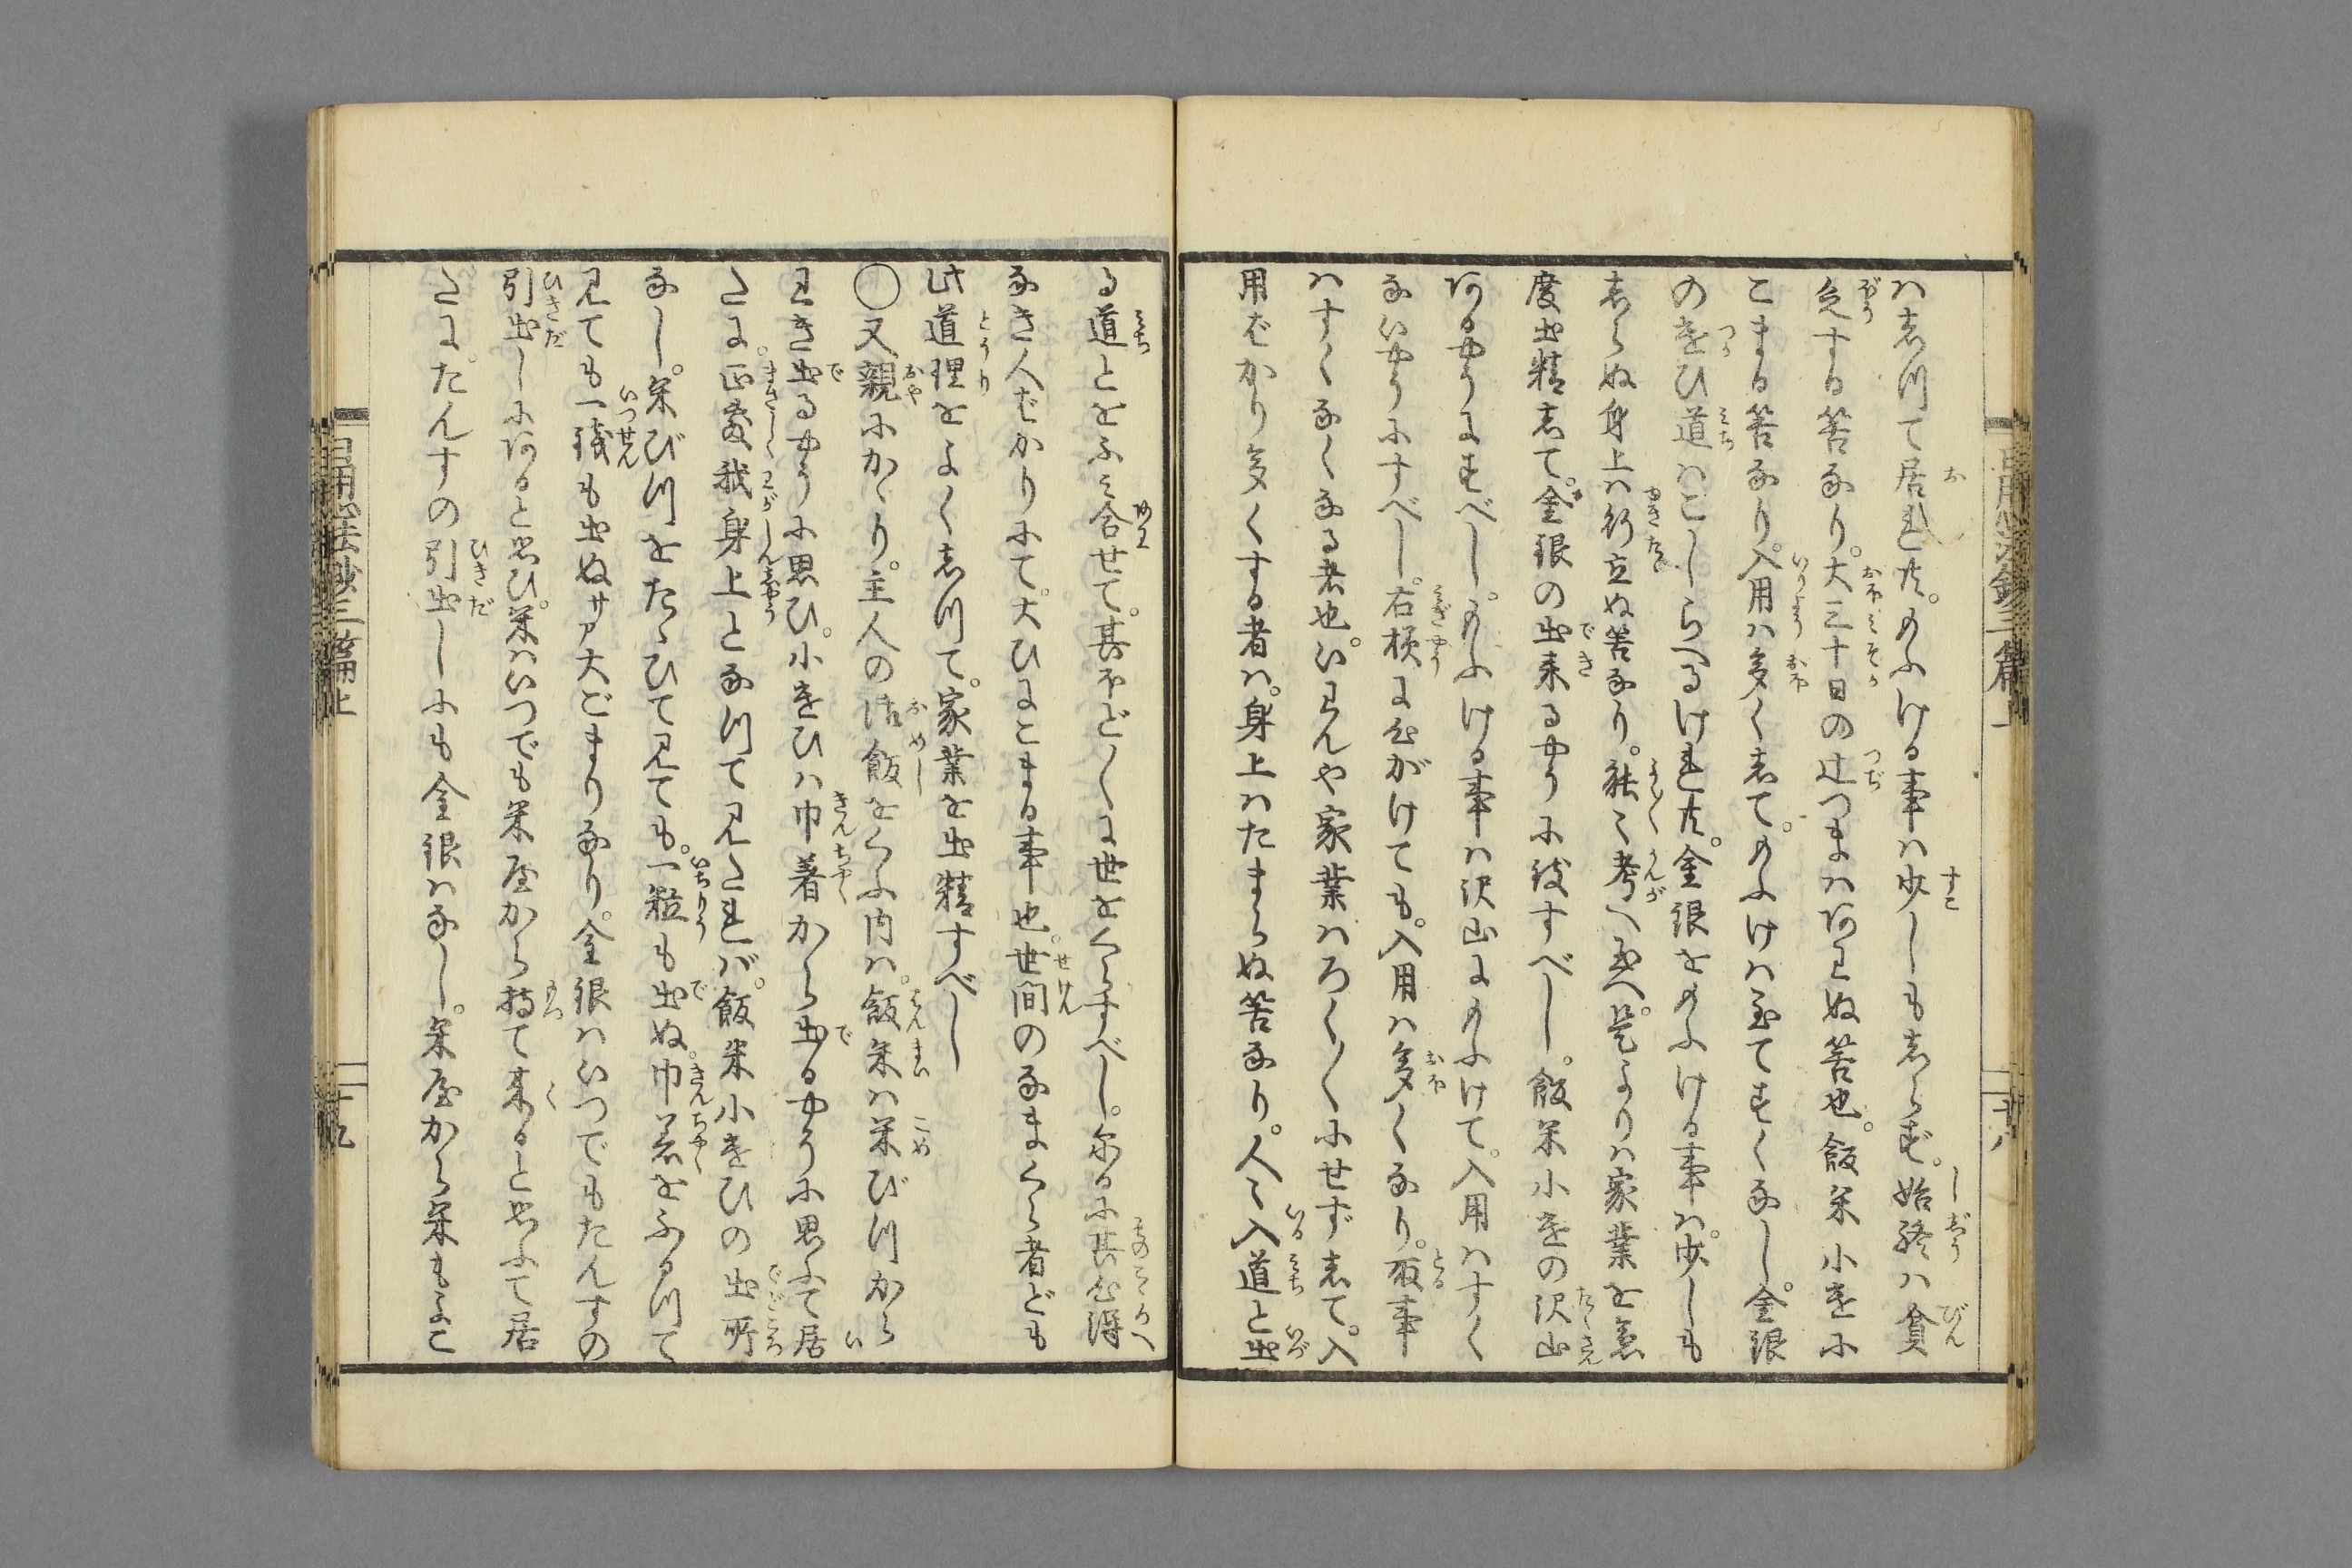 ハ志つて居れ共。まふける事ハ少しも志らず。始終ハ貧
乏する筈なり。大三十日の辻つまハ何ヱぬ筈也。飯米小遣に
こまる筈なり。入用ハ多く志て。まふけハ至てすくなし。金銀
の遣ひ道ハこしらへるけれ共。金銀をまふける事ハ。少しも
志らぬ身上ハ行立ぬ筈なり。能々考へ玉へ。是よりハ家業を急
度出精志て。金銀の出来るやうに致すべし。飯米小遣の沢山
何るやうにすべし。まふける事ハ沢山にまふけて。入用ハすく
ないやうにすべし。右様に心がけても。入用ハ多くなり。取事
ハすくなくなる者也。いわんや家業ハろく〳〵にせず志て。入
用ばかり多くする者ハ。身上ハたまらぬ筈なり。人々入道と出
る道とをふミ合せて。其ほど〳〵に世をくらすべし。尓るに其心得
なき人ばかりにて。大ひにこまる事也。世間のなまくら者ども
此道理をよく志つて。家業を出精すべし
〇又親にかゝり。主人の御飯をくふ内ハ。飯米ハ米びつから
わき出るやうに思ひ。小遣ひハ巾着から出るやうに思ふて居
たに。正敷我身上となつて見たれバ。飯米小遣ひの出所
なし。米びつをたゝひて見ても。一粒も出ぬ。巾着をふるつて
見ても一銭も出ぬサア大ごまりなり。金銀ハいつでもたんすの
引出しに何ると思ひ。米ハいつでも米屋から持て来ると思ふて居
たに。たんすの引出しにも金銀ハなし。米屋から米もよこ
日用心法鈔三篇上
十九